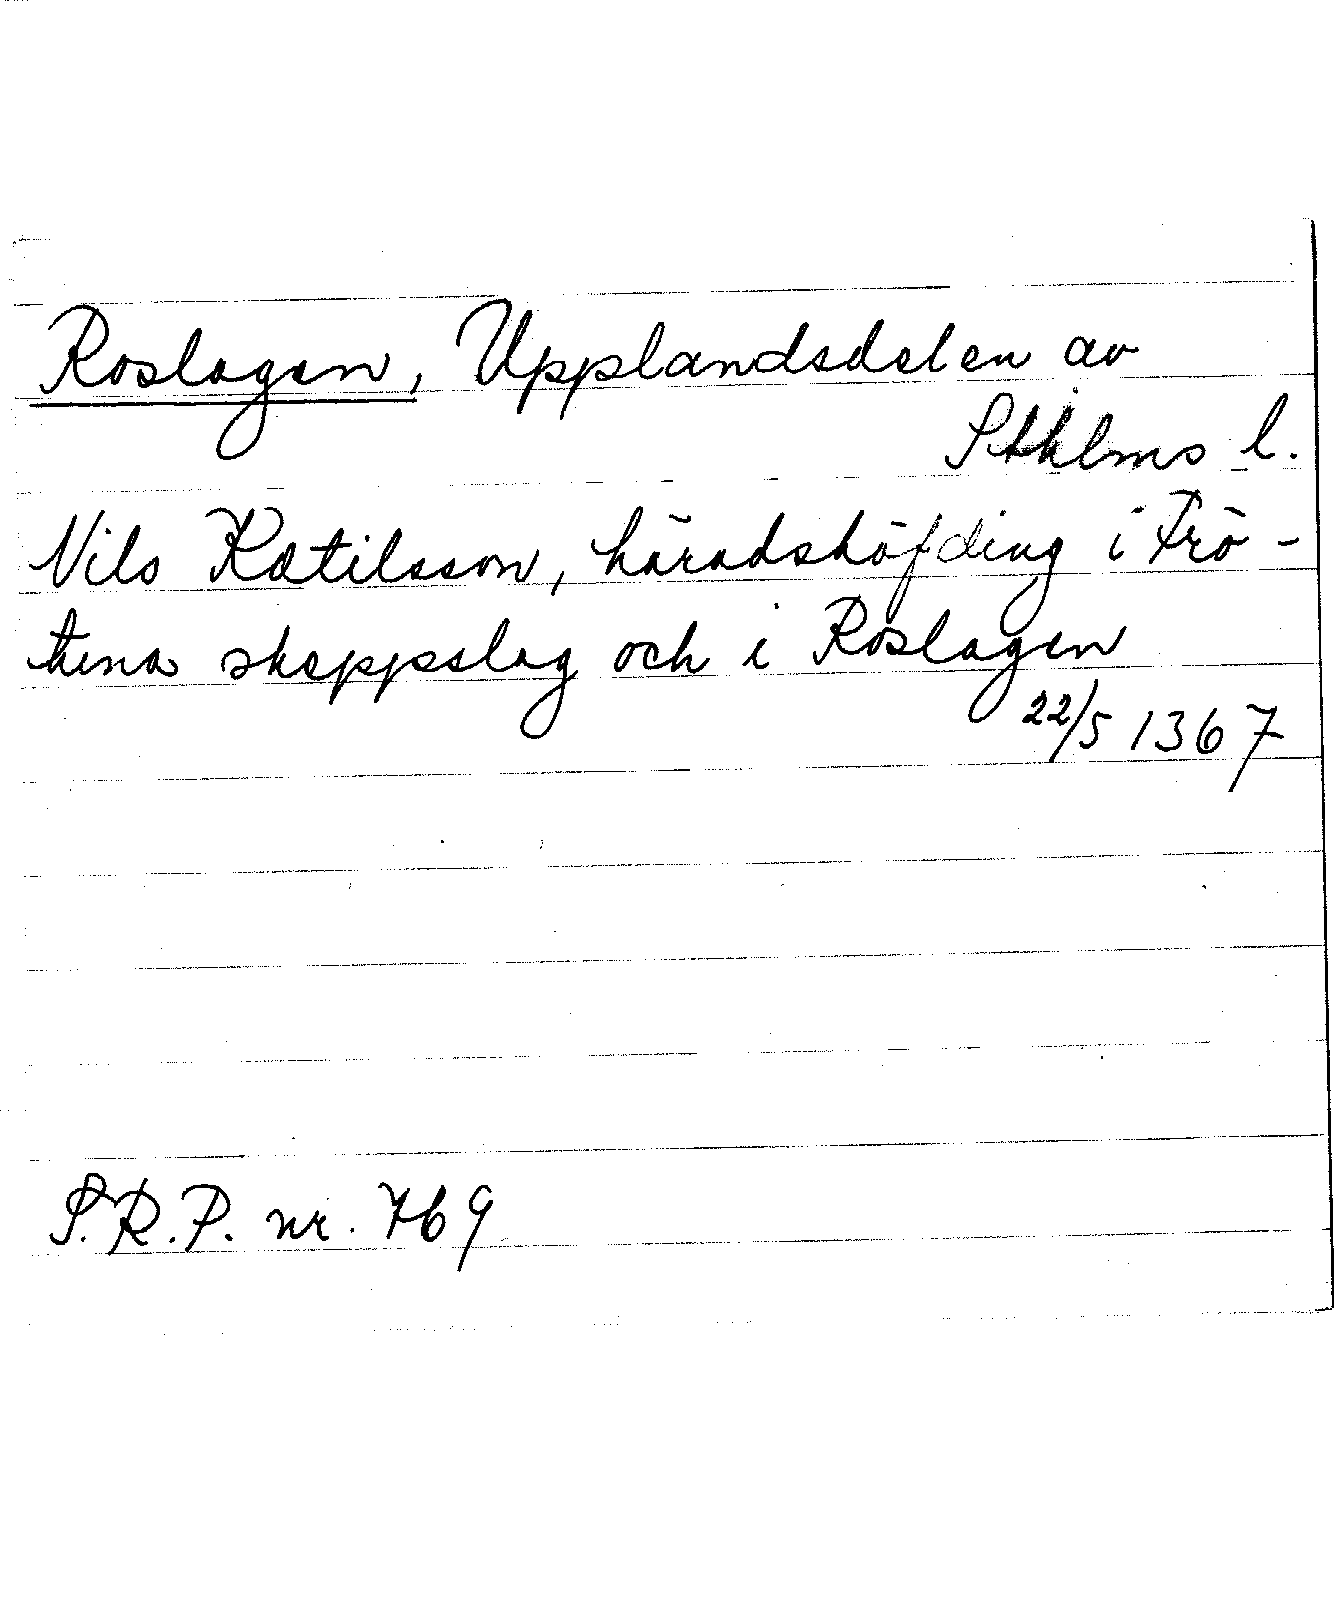 Roslagen, Upplandsdelen av
Sthlms l.
Nils Kætilsson, häradshöfding i Frö-
tuna skeppslag och i Roslagen
22/5 1367
S.R.P. nr. 769